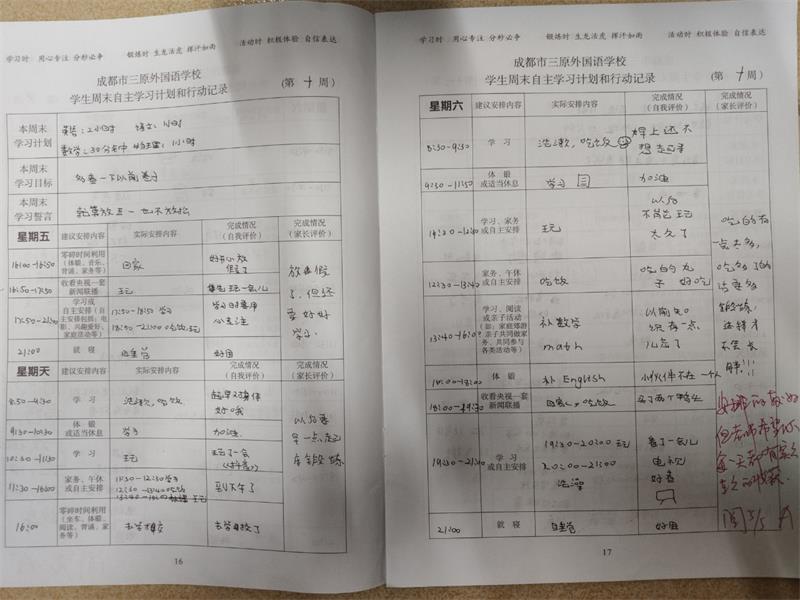 学习时 用心专注 分秒必争 锻炼时 生龙活虎 挥汗如雨 活动时 积极体验 自信表达
成都市三原外国语学校
学生周末自主学习计划和行动记录
(第 十 周)
本周末
学习计划
英语:2小时 语文:1小时
数学:30分钟 物理:1小时
本周末
学习目标
好看一下以前卷子
本周末
学习誓言
星期五 建议安排内容 实际安排内容 完成情况(自我评价) 完成情况(家长评价)
16:00-16:50 零碎时间利用(体锻、音乐、背诵、家务等) 回家 好开心放假了
16:50-17:50 收看央视一套新闻联播 玩
17:50-21:00 学习或自主安排(自主安排包括:电影、兴趣爱好、家庭活动等) 17:50-18:50 学习
18:50-21:00 吃饭,玩
学习时要用心专注
21:00 就寝 睡觉 好困
放假了,但还要好好学习
星期天 建议安排内容 实际安排内容 完成情况(自我评价) 完成情况(家长评价)
8:50-9:30 学习 洗漱,吃饭
9:30-10:30 体锻或适当休息 学习 加油
10:30-11:30 学习 玩 玩了一会
11:30-16:00 家务、午休或自主安排 11:30-12:30 学习
12:30-13:40 吃饭
16:00 零碎时间利用(坐车、体锻、阅读、背诵、家务等) 去学校 去学校了
以后要早一点起床锻炼
16
学习时 用心专注 分秒必争 锻炼时 生龙活虎 挥汗如雨 活动时 积极体验 自信表达
成都市三原外国语学校
学生周末自主学习计划和行动记录
(第 十 周)
星期六 建议安排内容 实际安排内容 完成情况(自我评价) 完成情况(家长评价)
8:30-9:30 学习 洗漱,吃饭 早上还不想起床
9:30-11:50 体锻或适当休息 学习 加油
学习、家务或自主安排 玩 以后不能玩太久了
12:30-13:40 家务、午休或自主安排 吃饭 吃的丸子好吃
13:40-16:00 学习、阅读或亲子活动(如:家庭郊游亲子共同做家务、共同参与各类活动等) 补数学
math
以前知识有一点儿忘了
体锻 补English 小伙伴不在 一个人
18:00-19:30 收看央视一套新闻联播 回家,吃饭
19:30-21:00 学习或自主安排 19:30-20:00 玩
20:00-21:00
洗澡
看了一会儿电视
好看
21:00 就寝 睡觉 好困
吃多了的话要多锻炼,这样才不会长胖!!!
周 5/5 A
17